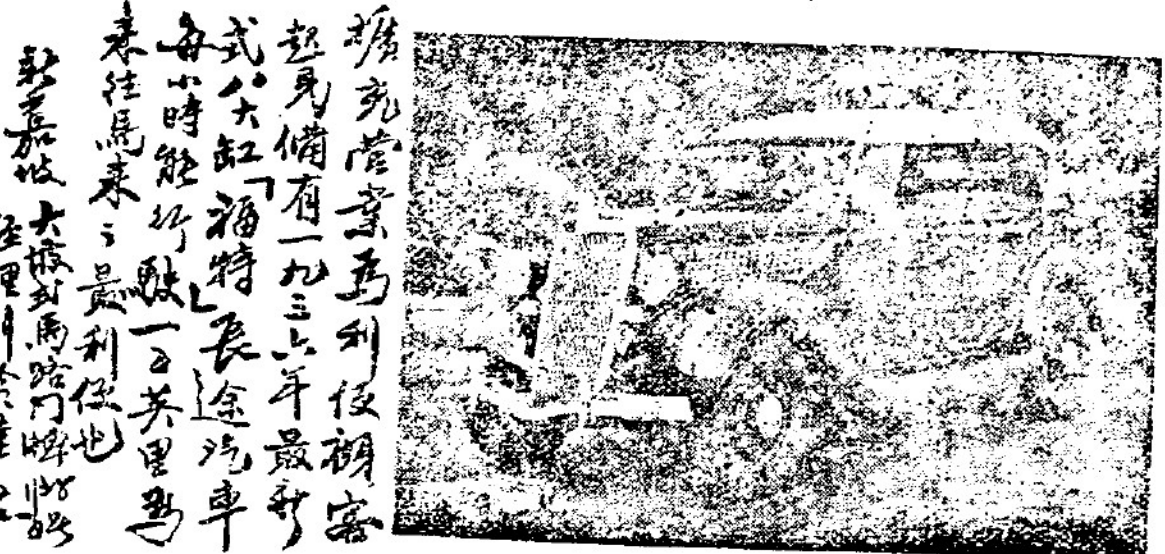 擴充營業為利便襯客
起見備有一九三六年最新
式八大缸「福特」長途汽車
每小時能行駛一百英里為
來往馬來々最利便也
新嘉坡大坡弍馬路門牌